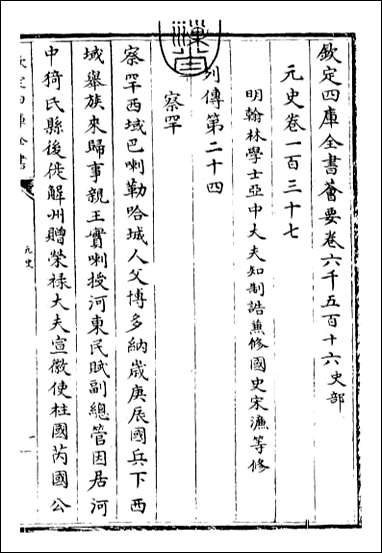 欽定四庫全書薈要卷六千五百十六史部
元史卷一百三十七
明翰林學士亞中大夫知制誥兼修國史宋濂等修
列傳第二十四
察罕
察罕西域巴喇勒哈城人父博多納歲庚辰國兵下西
域舉族來歸事親王實喇授河東民賦副總管因居河
中猗氏縣後徙解州贈榮祿大夫宣徽使柱國芮國公
欽定四庫全書
元史
一